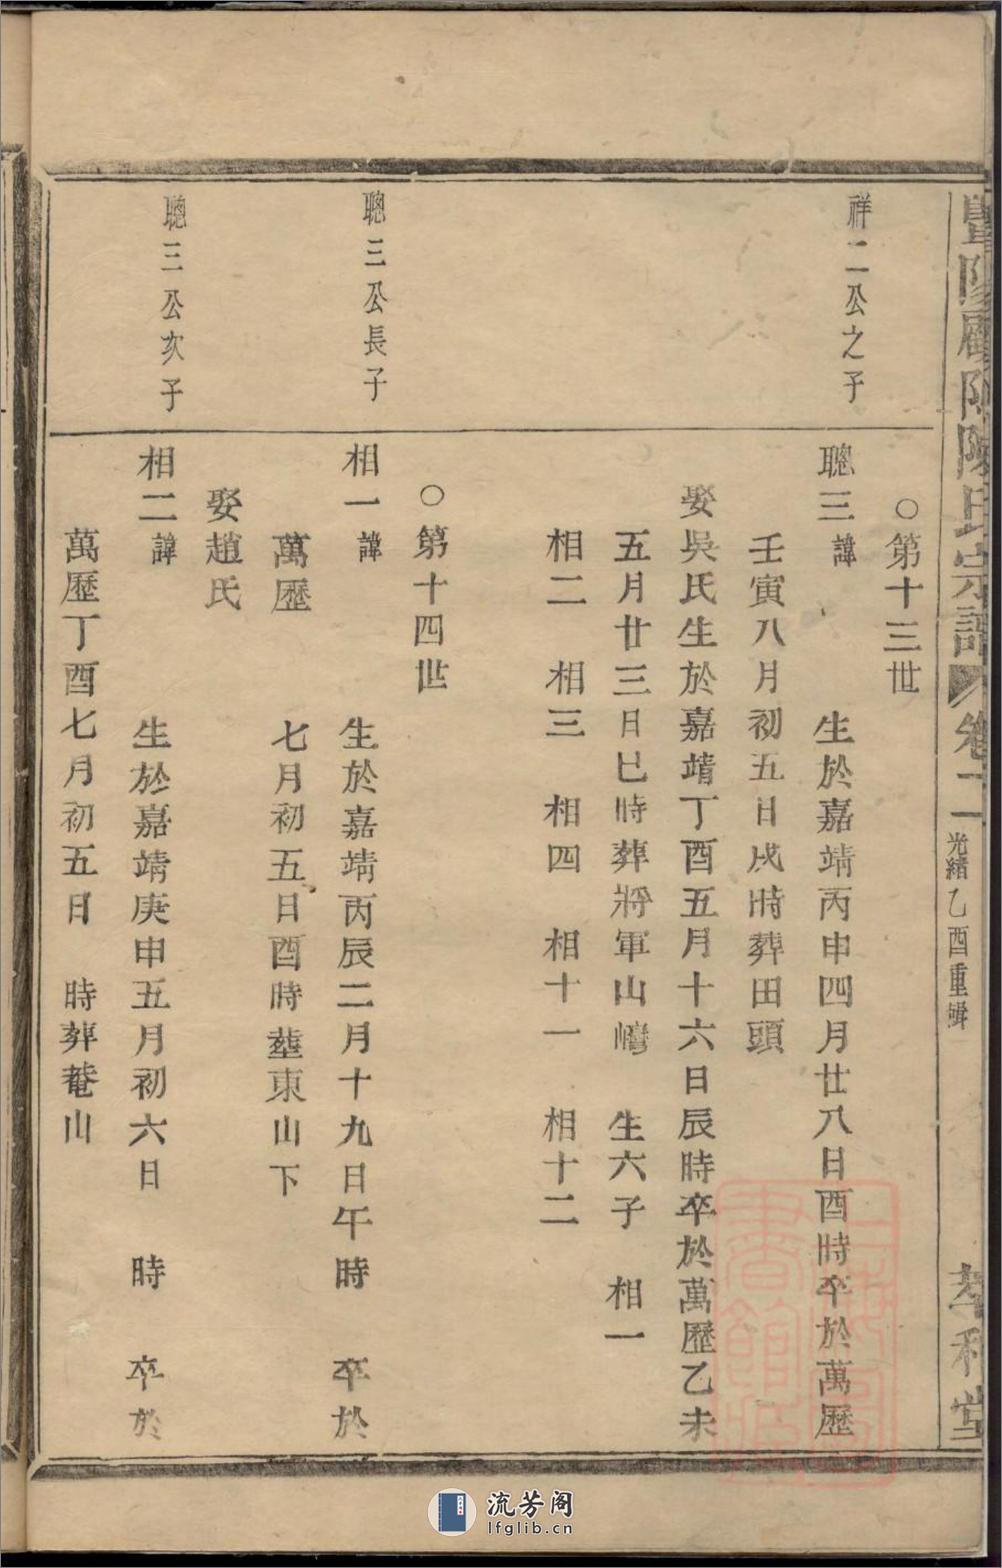 暨陽 陳氏宗譜 卷二 光緒乙酉重輯 孝和堂
○第十三世
祥二公之子
聰三諱 生於嘉靖丙申四月廿八日酉時卒於萬歷
壬寅八月初五日戌時葬田頭
娶吳氏生於嘉靖丁酉五月十六日辰時卒於萬歷乙未
五月廿三日巳時葬將軍山 生六子 相一
相二 相三 相四 相十一 相十二
○第十四世
聰三公長子
相一諱 生於嘉靖丙辰二月十九日午時 卒於
萬歷 七月初五日酉時塟東山下
娶趙氏
聰三公次子
相二諱 生於嘉靖庚申五月初六日 時 卒於
萬歷丁酉七月初五日 時葬菴山
流芳阁
lfglib.cn